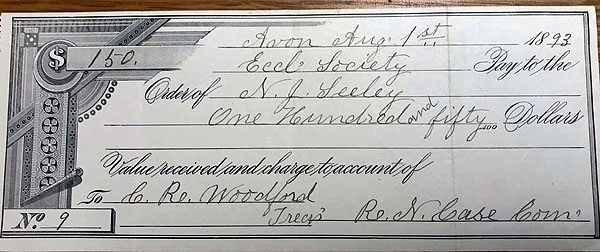 $ 150.
Avon Aug. 1st 1893
Eccl. Society Pay to the
Order of N. J. Seeley
One Hundred and fifty 00 Dollars
Value received and charge to account of
To C. R. Woodford
Treas R. N. Case Com.
No. 9